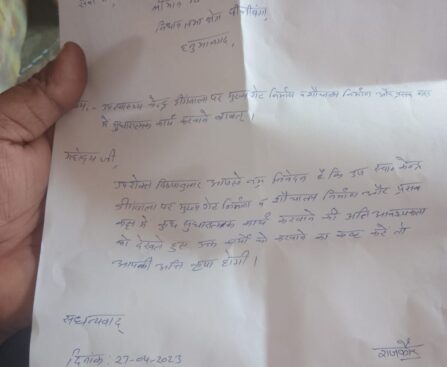 विधानसभा क्षेत्र पीलीबंगा,
हनुमानगढ़,
उपस्वास्थ्य केन्द्र डींगवाला पर मुख्य गेट निर्माण व शौचालय निर्माण और प्रसव कक्ष
में सुधारात्मक कार्य करवाने बाबत् ।
महोदय जी,
उपरोक्त विषयानुसार आपसे नम्र निवेदन है कि उप स्वा० केन्द्र
डींगवाला पर मुख्य गेट निर्माण व शौचालय निर्माण और प्रसव
कक्ष में कुछ सुधारात्मक कार्य करवाने की अति आवश्यकता
को देखते हुए उक्त कार्यों को करवाने का कष्ट करें तो
आपकी अति कृपा होगी ।
सधन्यवाद्
दिनांक: 27-04-2023
राजकौर